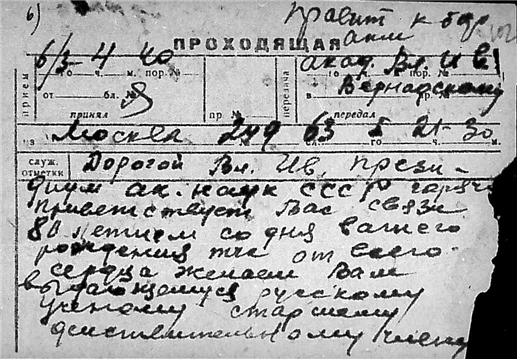 б)
Правит к бор
ПРОХОДЯЩАЯ
акад. Вл. Ив.
Вернадскому
6/3 4 40
го ч. м. пор. №
го ч. м. пор. №
прием
передача
от бл. №
принял
пр. №
передал
из Москва 249 63 5 21-30
служ. отметки
Дорогой Вл. Ив. Прези-
диум ак. наук СССР горячо
приветствует Вас связи
80 летием со дня вашего
рождения тчк от всего
сердца желаем Вам
выдающемуся русскому
ученому старшему
действительному члену